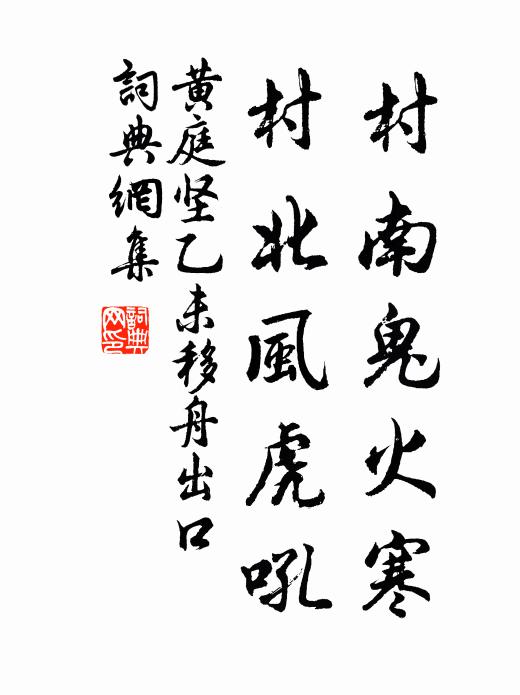 村南鬼火寒
村北風虎吼
黄庭坚乙未移舟出口
詞典網集
詞典网印